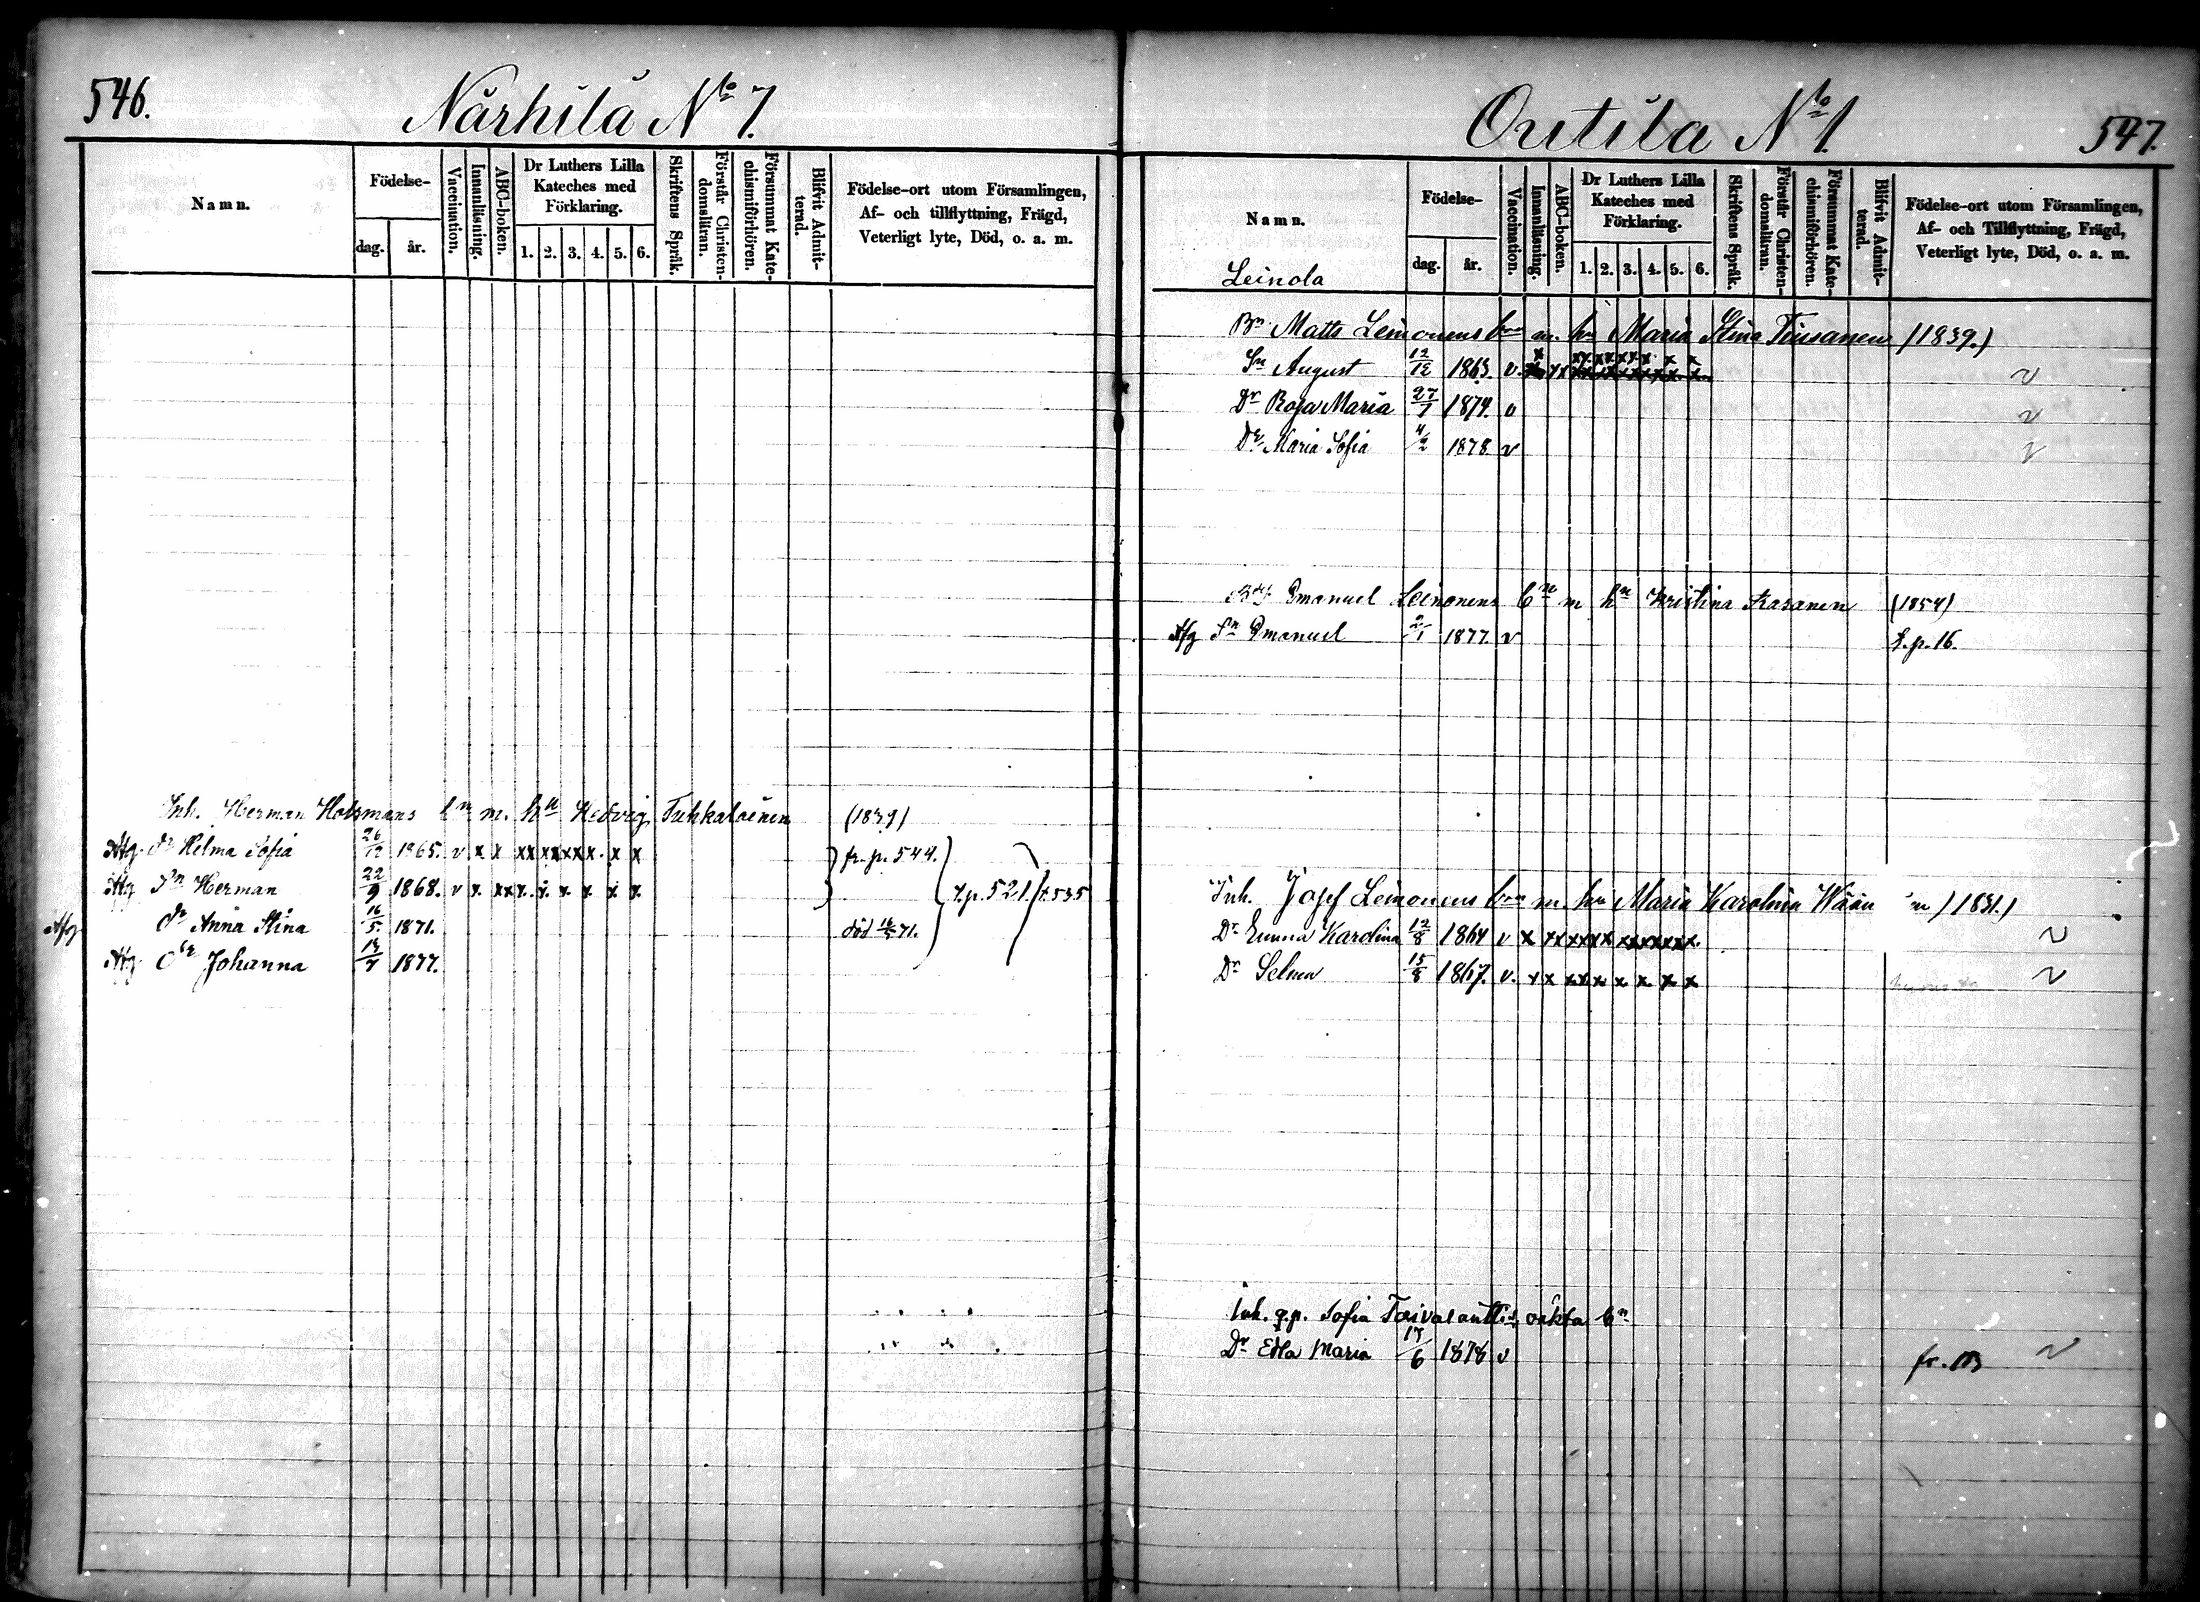 546.
Närhilä No 7.
Namn.
Födelse-
dag.
år.
Vaccination.
Innanläsning.
ABC-boken.
Dr Luthers Lilla
Kateches med
Förklaring.
1. 2. 3. 4. 5. 6.
Skriftens Språk.
Förstår Christen-
domsläran.
Försummat Kate-
chismiförhören.
Blifvit Admit-
terad.
Födelse-ort utom Församlingen,
Af- och tillflyttning, Frägd,
Veterligt lyte, Död, o. a. m.
Inh. Herman Holsmans bn m. hu Hedvig Tuhkaloinen (1839)
Afg dr Hilma Sofia 26/12 1865. v x x xx xx xx x. x x fr. p. 544.
Afg Sn Herman 22/9 1868. v x. xx x. x. x x x x t.p. 521. t. 535
Afg dr Anna Stina 16/5 1871. död 71.
Afg Dr Johanna 13/7 1877.
Outila No 1.
547.
Namn.
Födelse-
dag.
år.
Vaccination.
Innanläsning.
ABC-boken.
Dr Luthers Lilla
Kateches med
Förklaring.
1. 2. 3. 4. 5. 6.
Skriftens Språk.
Förstår Christen-
domsläran.
Försummat Kate-
chismiförhören.
Blifvit Admit-
terad.
Födelse-ort utom Församlingen,
Af- och Tillflyttning, Frägd,
Veterligt lyte, Död, o. a. m.
Leinola
Bn Matts Leinonens bn m. hu Maria Stina (1839.)
Sn August 12/12 1863. v.
Dr Rosa Maria 27/7 1874. v
Dr Maria Sofia 4/2 1878. v
Emanuel Leinonens bn m hu Kristina Kasanen (1854)
Afg Sn Emanuel 2/1 1877. v t. p. 16.
Inh. Josef Leinonens bn m. hu Maria Karolina (1831.)
Dr Emma Karolina 12/8 1864 v x xxxxxx xxxxxx.
Dr Selma 15/8 1867. v. x x x x x x x x x
Inh. q.p. Sofia oäkta bn
Dr Edla Maria 17/6 1878 v fr.